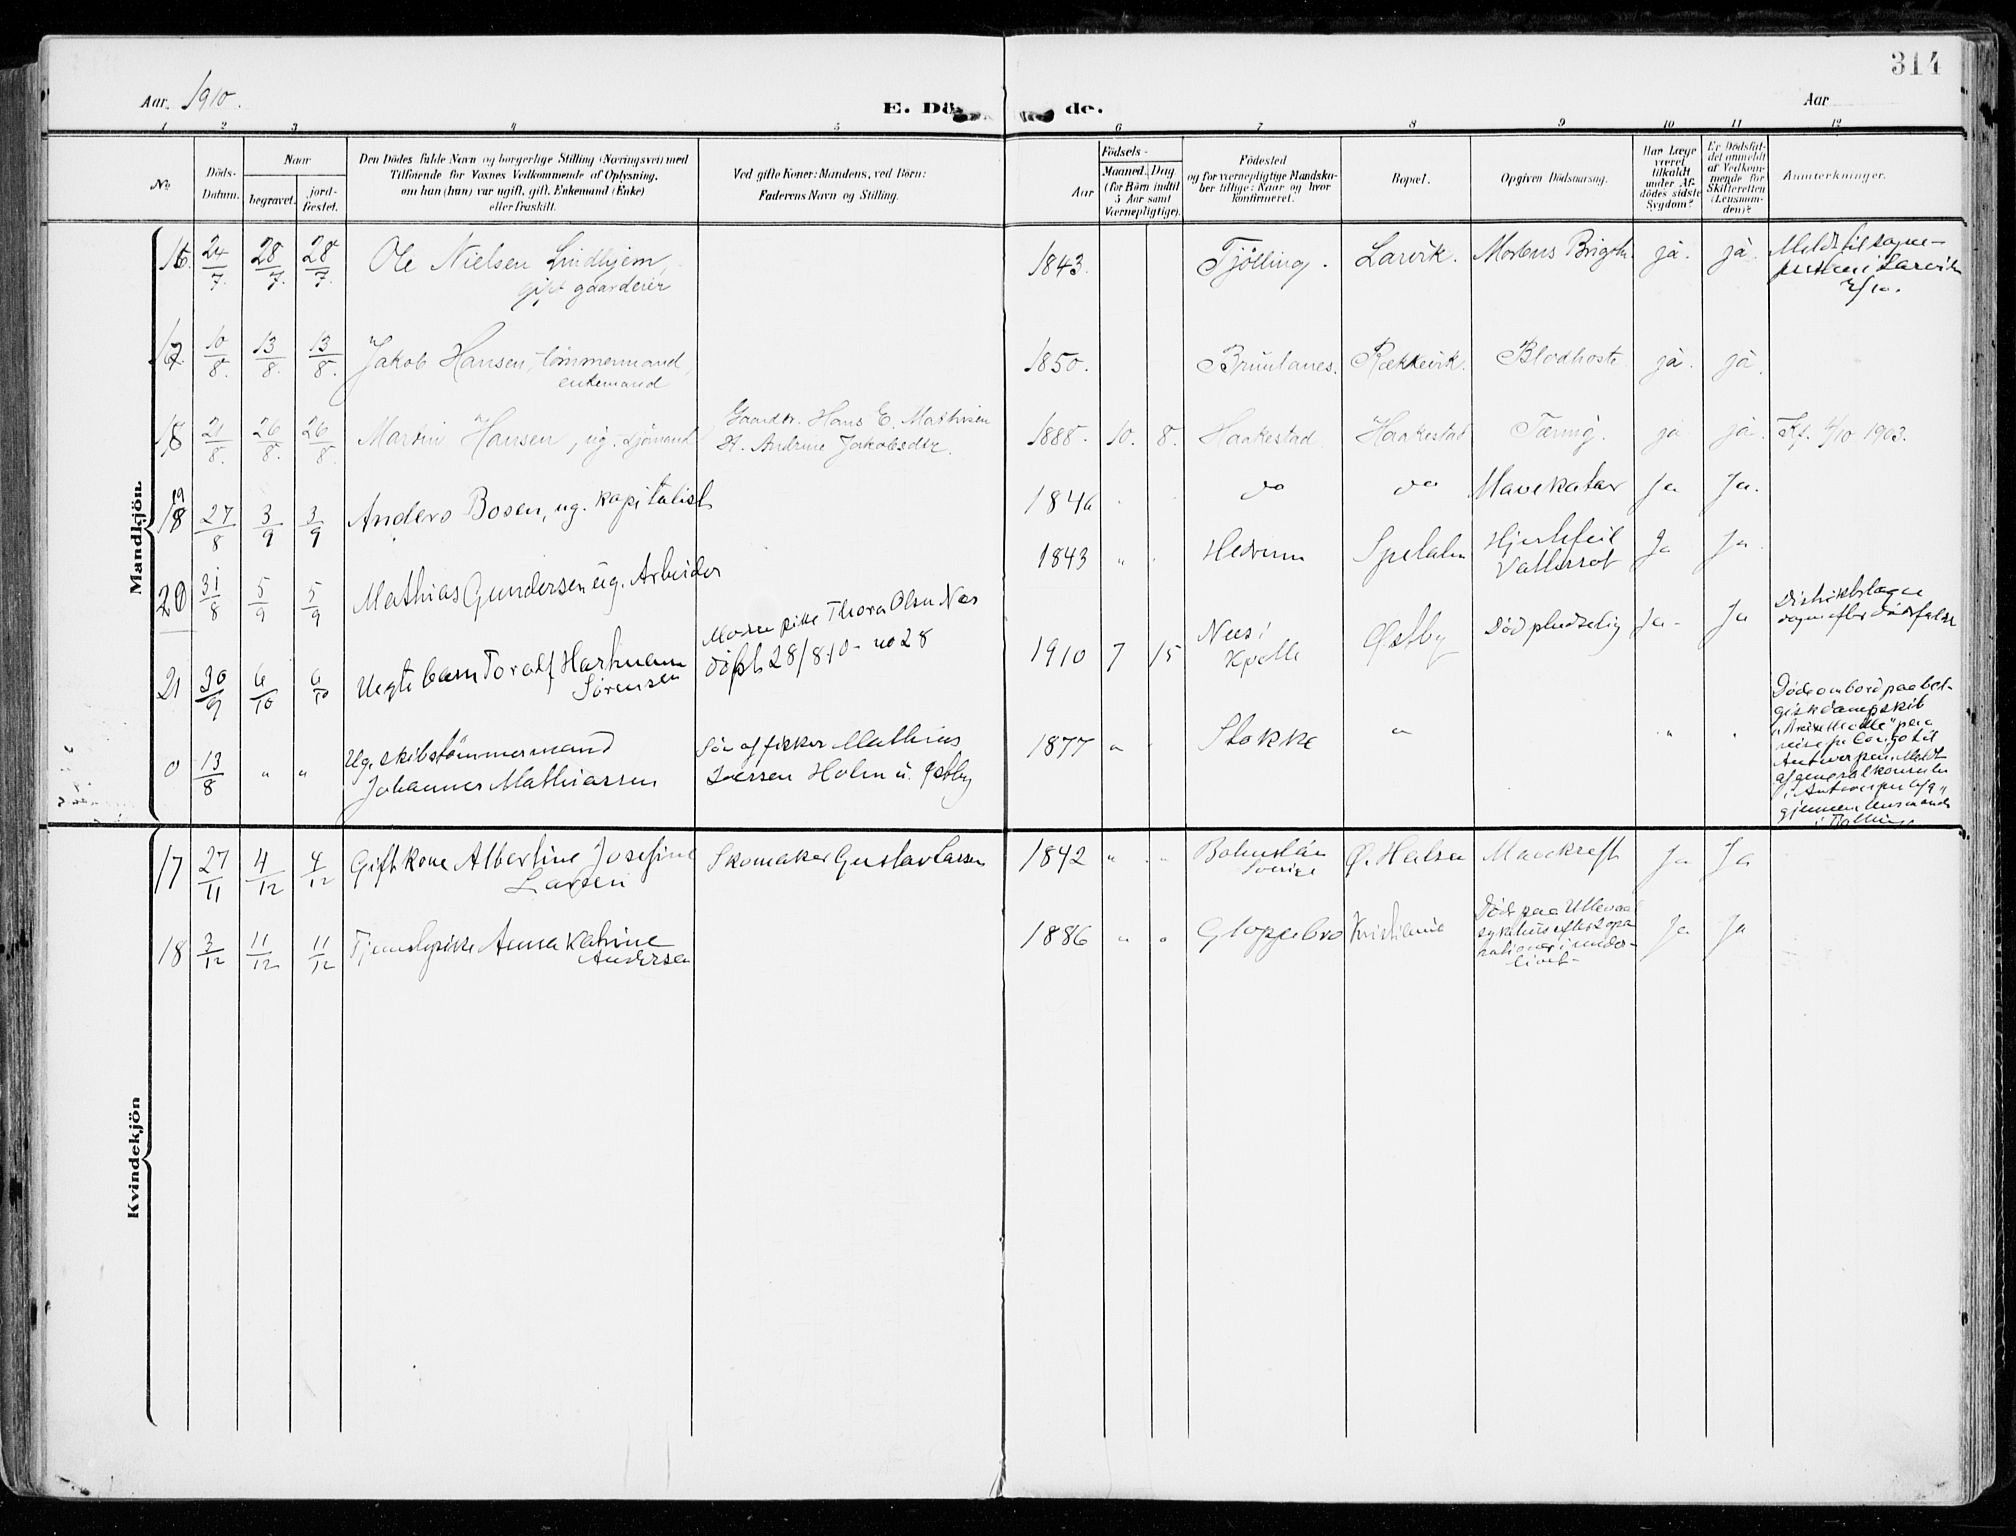 314
Aar 1910.
E. Dö de.
Aar
1 2 3 4 5 6 7 8 9 10 11 12
No.
Döds-Datum.
Naar
begravet.
jord-fæstet.
Den Dödes fulde Navn og borgerlige Stilling (Næringsvei) med
Tilföiende for Voxnes Vedkommende af Oplysning,
om han (hun) var ugift, gift, Enkemand (Enke)
eller fraskilt.
Ved gifte Koner: Mandens, ved Börn:
Faderens Navn og Stilling.
Födsels-
Aar
Maaned. Dag
(for Börn indtil
5 Aar samt
Værnepligtige).
Födested
og for værnepligtige Mandska-
ber tillige: Naar og hvor
konfirmeret.
Bopæl.
Opgiven Dödsaarsag.
Har Læge
været
tilkaldt
under Af-
dödes sidste
Sygdom?
Er Dödsfal-
det anmeldt
af Vedkom-
mende for
Skifteretten
(Lensman-
den)?
Anmerkninger.
Mandkjön.
16. 24/7. 28/7. 28/7. Ole Nielsen Lindhjem, gift gaardeier 1843. Tjölling. Larvik. Morbus Brigth. ja. ja. Meldt til sogne-
presten i Larvik
17 10/8. 13/8. 13/8. Jakob Hansen, tømmermand, enkemand 1850. Brunlanes. Rækkevik. Blodhoste ja. ja.
18 21/8. 26/8. 26/8. Martin Hansen, ug. sjömand Gaardbr. Hans E. Mathisen
H. Andrine Jakobsdtr. 1888. 10. 8. Haakestad Haakestad Tæring. ja ja. Kf. 4/10 1903.
19 27/8 3/9 3/9 Anders Bosen, ug. kapitalist 1846 do do Mavekatar Ja Ja.
20 31/8 5/9 5/9 Mathias Gundersen ug. Arbeider 1843 " Hedrum Hjertefeil
Vattersot Ja Ja
21 30/9 6/10 6/10 Uegte barn Toralf Hartmann
Sørensen Moder pike Thora Olsen Næs
døpt 28/8 10 - no 28 1910 7 15 Nes i Østby Død pludselig Ja Ja Distriktslæge
0 13/8 " " Ug. skibstømmermand
Johannes Mathiassen Søn af fisker Mathias
Iversen Holm u. Østby 1877 " Stokke " " Døde ombord paa bel-
gisk dampskib
reise fra Congo til
Antwerpen. Meldt
af generalkonsulen
i Antwerpen
gjennem lensmanden
i Tjølling
Kvindekjön
17 27/11 4/12 4/12 Gift kone Albertine Josefine
Larsen Skomaker Gustav Larsen 1842 " " Bohuslän
Sverige Ø. Halsen Mavekreft Ja Ja
18 3/12 11/12 11/12 Tjenestepike Anna Katrine
Andersen 1886 " " Gloppebro Kristiania Død paa Ullevaal
sykehus efter 2 ope-
rationer i under-
livet Ja Ja